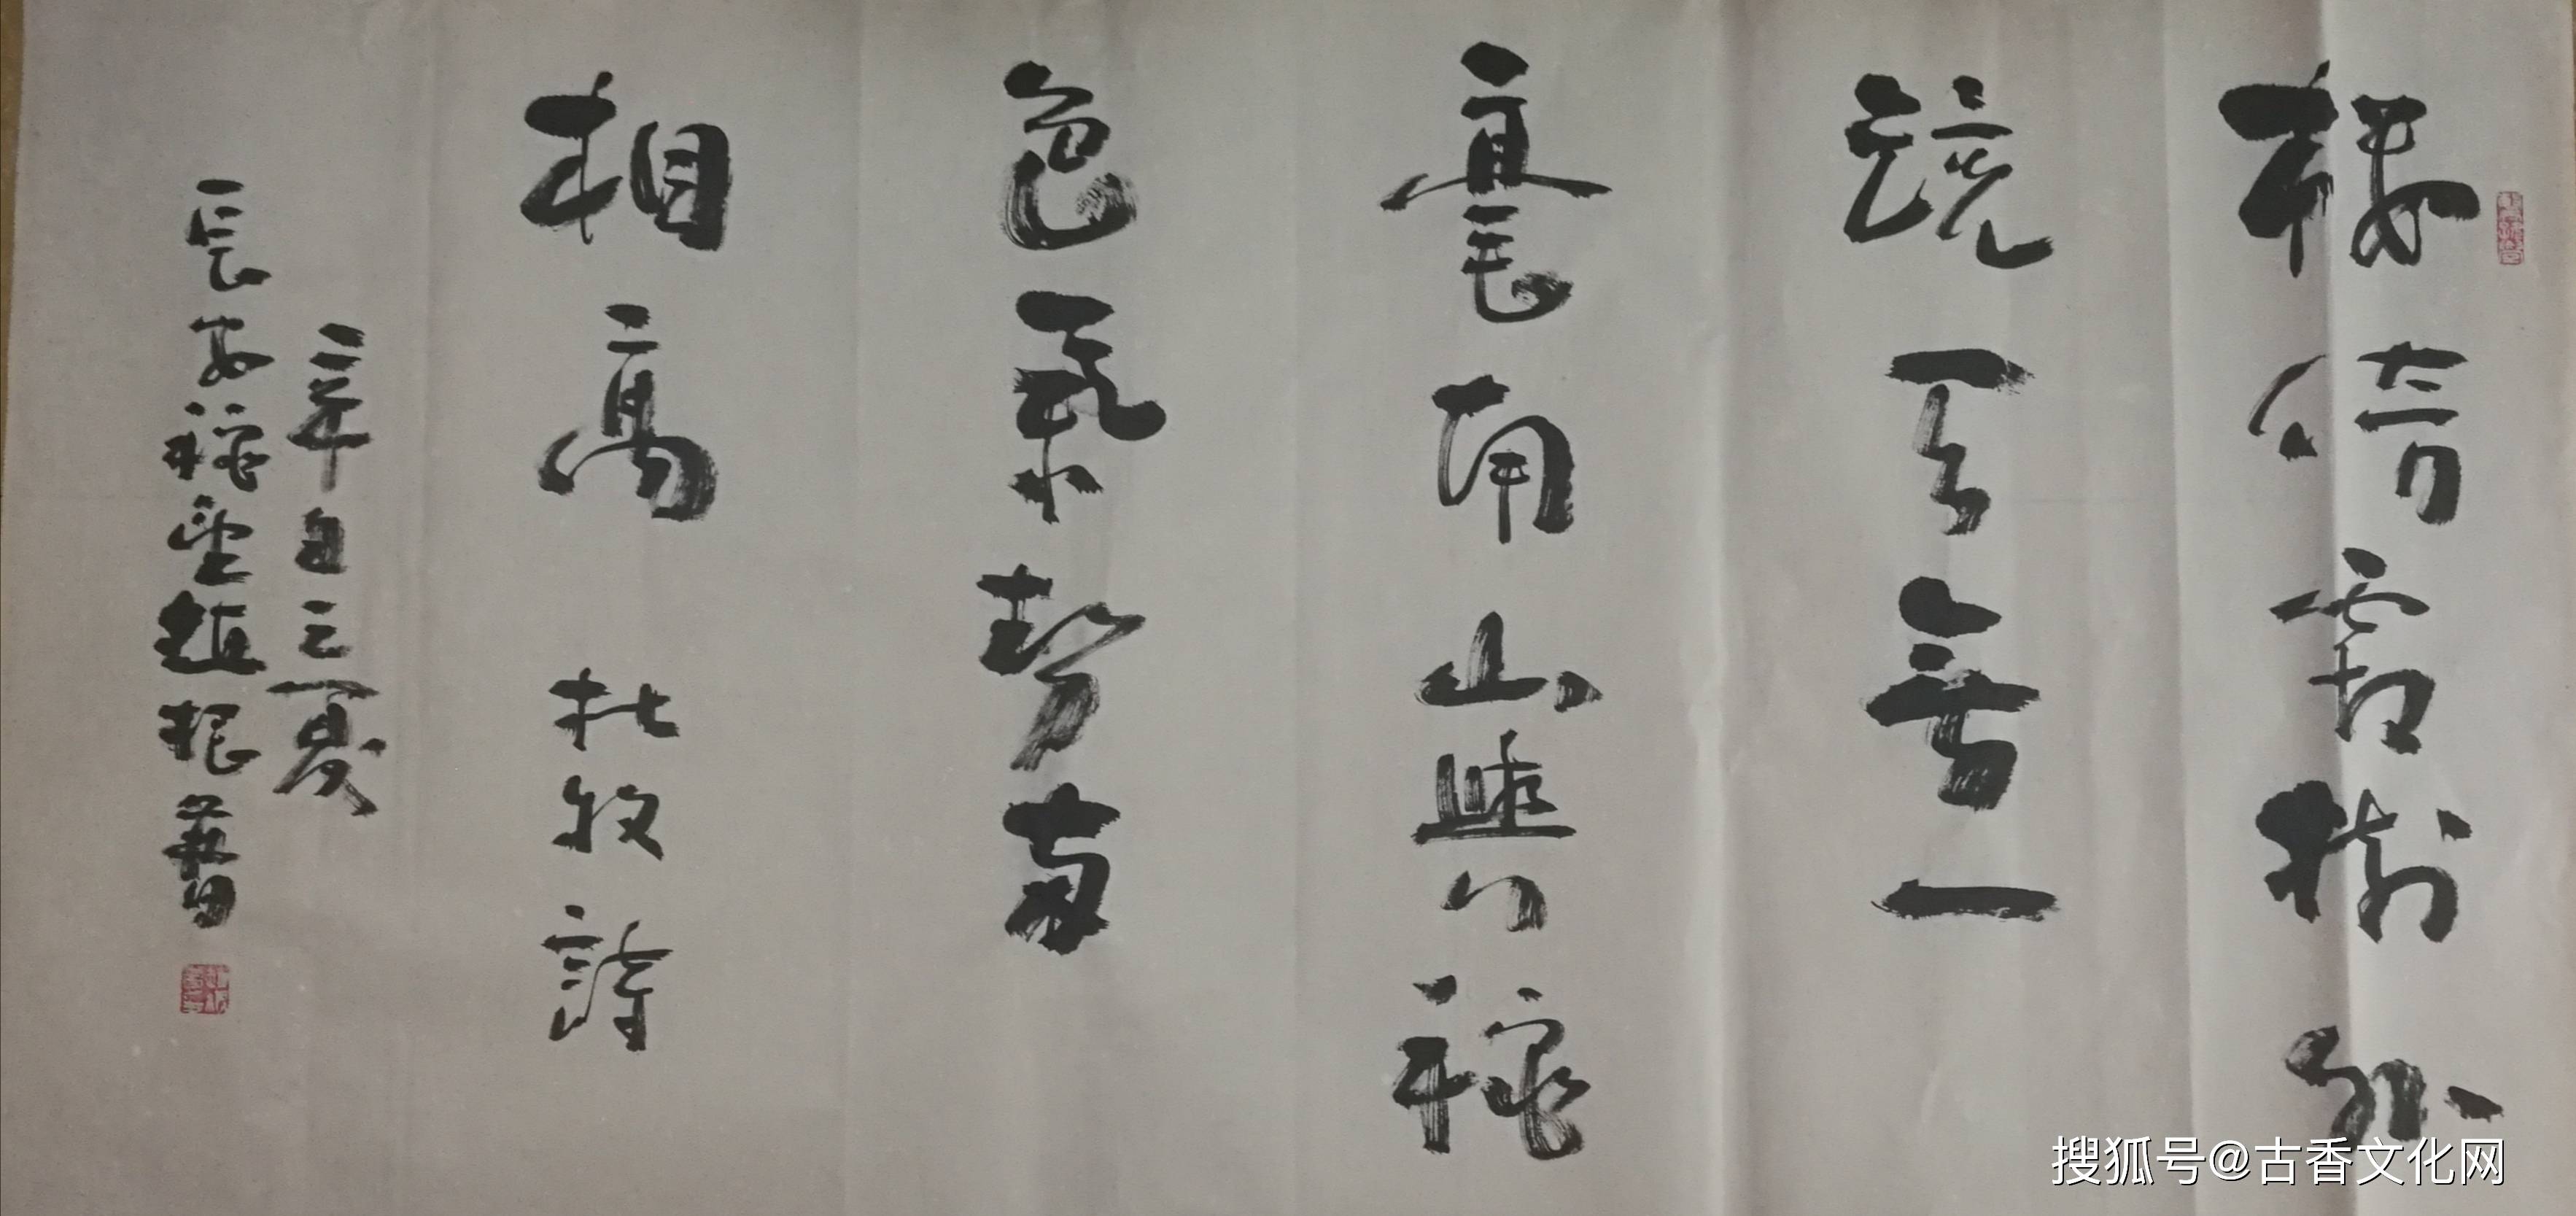 樓倚霜樹外
鏡天無一
毫南山與秋
色氣勢兩
相高 杜牧詩
辛丑之夏
長安
書
搜狐号@古香文化网